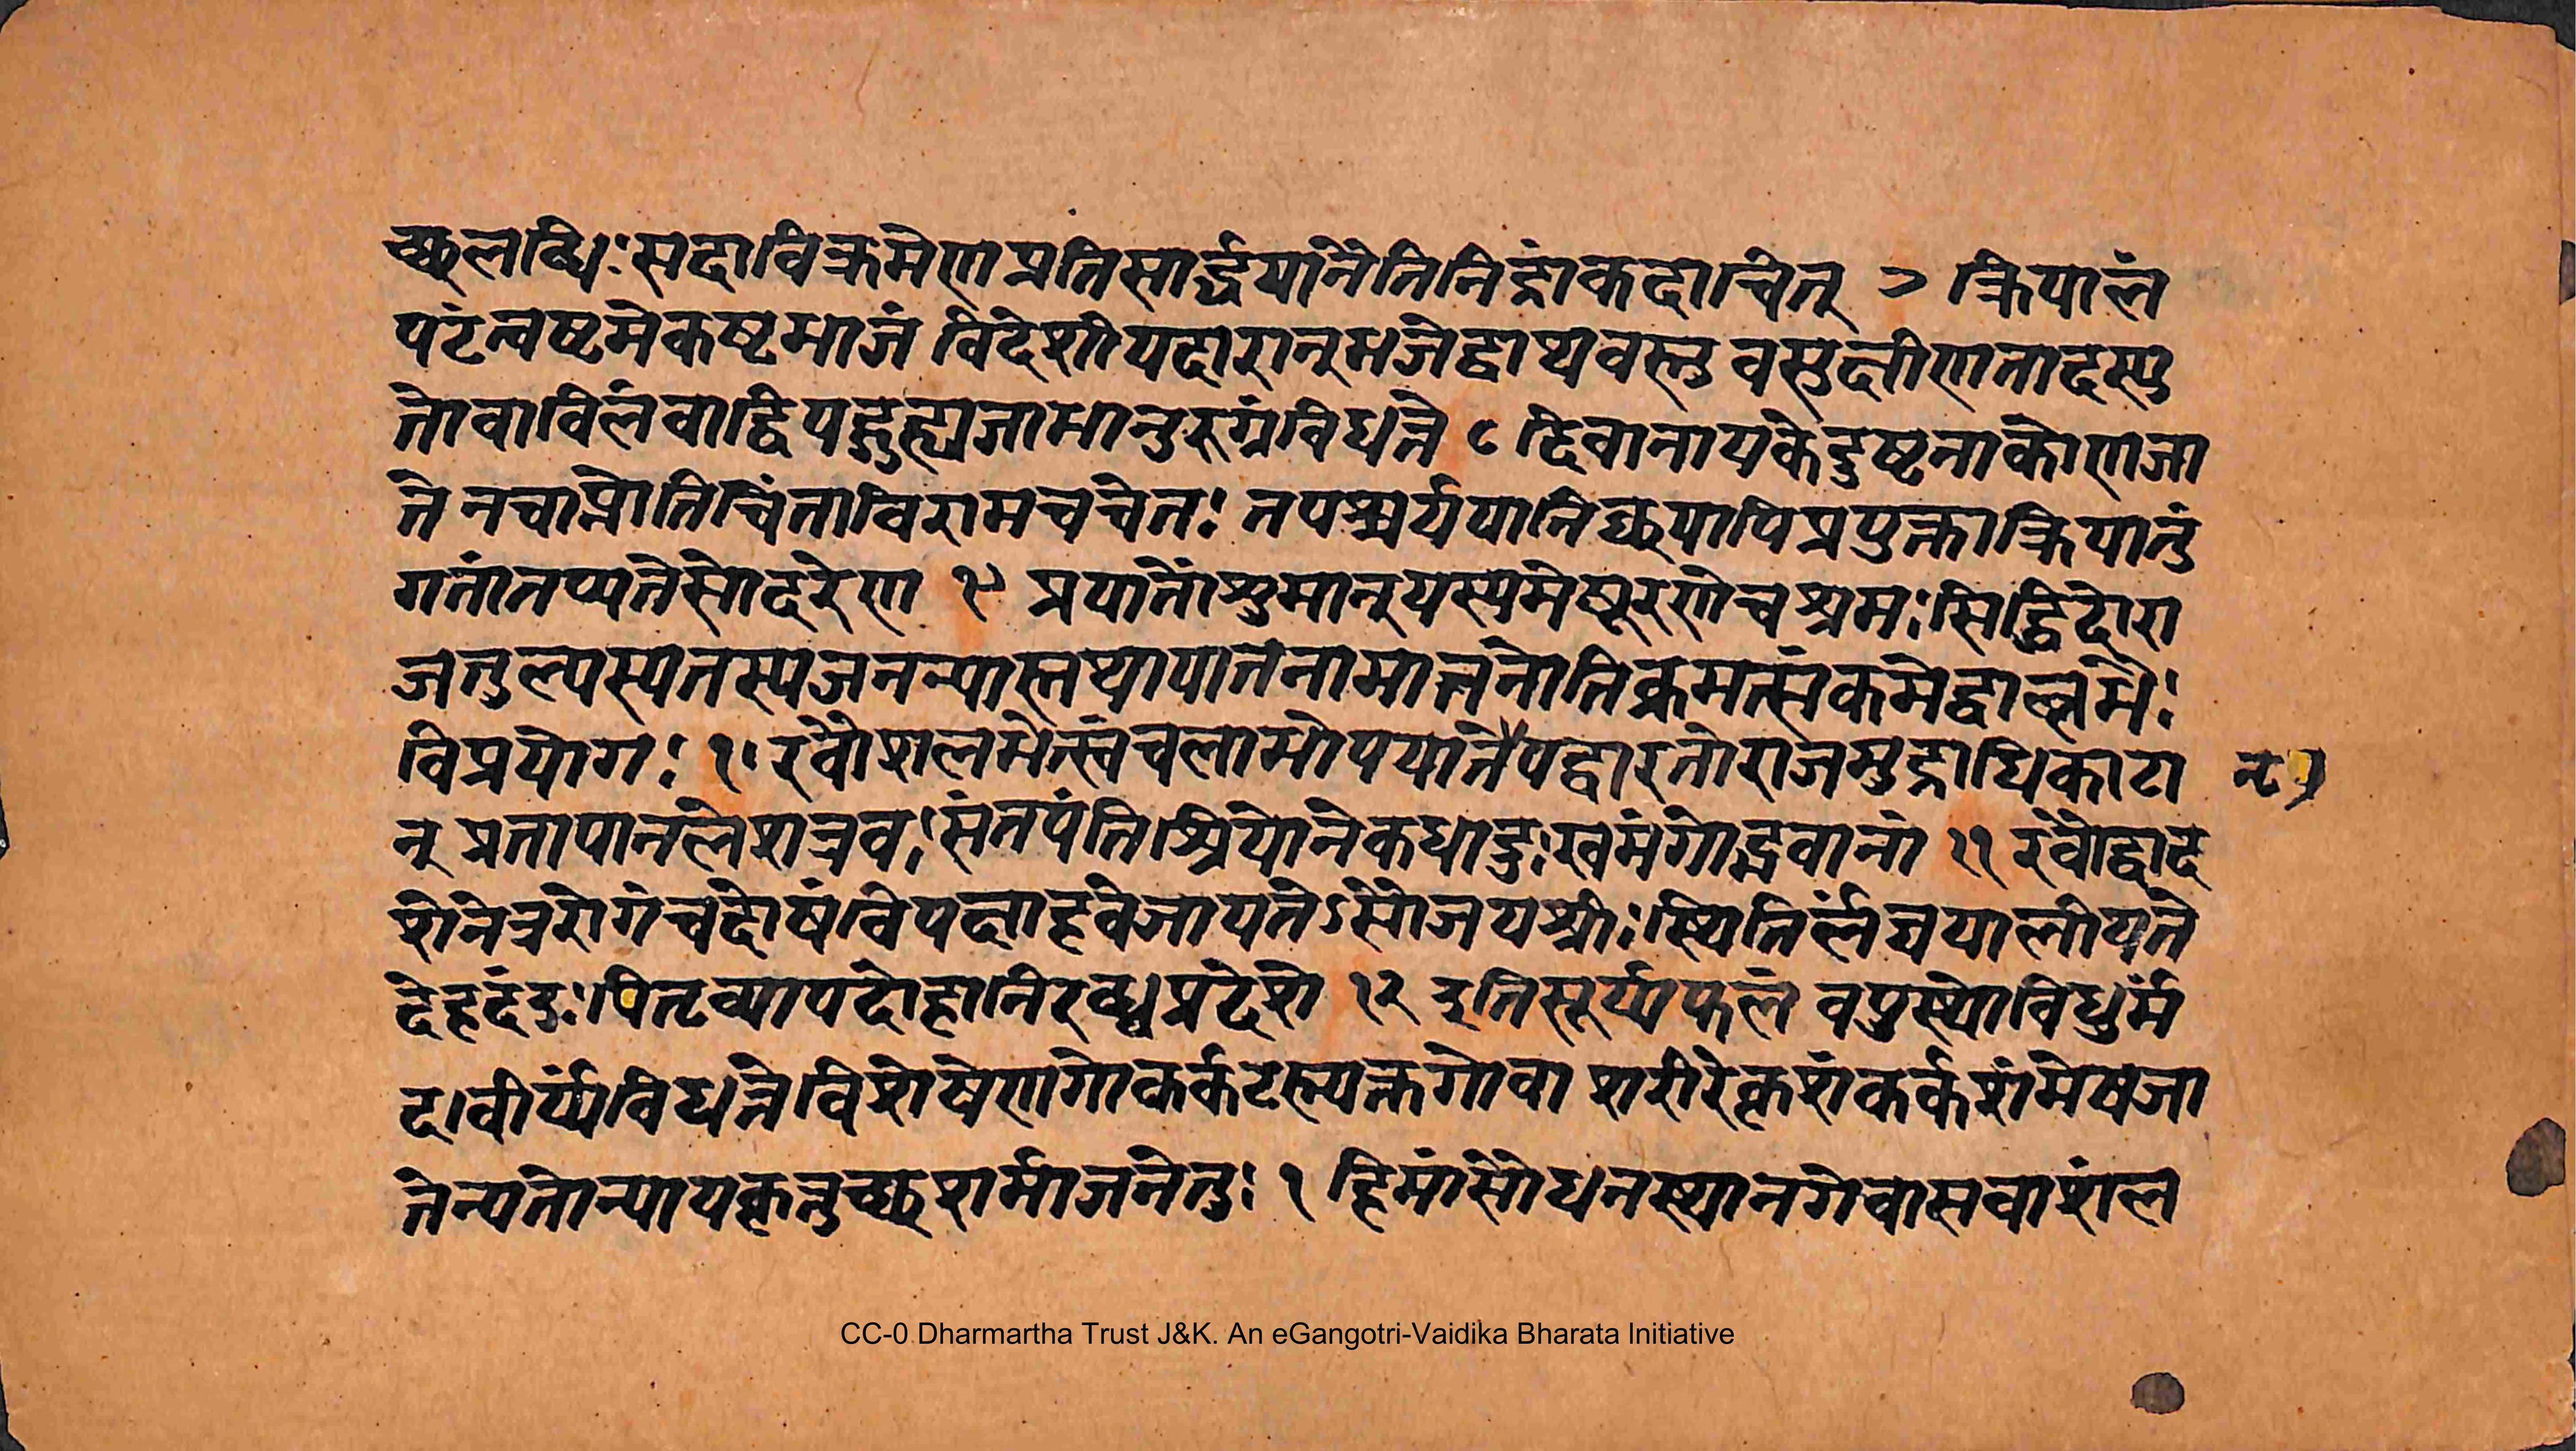 च्छलब्धिः सदा विक्रमेण प्रतिस्पर्द्धया नैति निद्रां कदाचित् ७ क्रियालं
पटं त्वष्टमे कष्टभाजं विदेशीयदारान् भजेद्वाथ वस्तु वसुक्षीणतादस्यु
तो वा विलंवाद्विपद्गुह्यजाभानुरुग्रं विधत्ते ८ दिवानायके दुष्टता कोणजा
ते नचाप्नोति चिंताविरामच चेतः तपश्चर्यया निच्छयापि प्रयुक्ता क्रियातुं
गतां तप्यते सोदरेण ९ प्रयातोंशुमान् यस्य मेषूरणे च श्रमः सिद्धिदो रा
जतुल्यस्य तस्य जनन्यास्तथा पातनामातनोति क्रमत्संक्रमेद्वाल्लभैः
विप्रयोगः १० रवौ शलभेत्स्वं च लाभोपयाते पद्वारतो राजमुद्राधिकाटा
न् प्रतापानले शत्रवः संतपंति श्रियोनेकधा दुःखमंगोद्भवानां ११ रवौ द्वाद
शे नेत्ररोगं च दोषं विपक्षाहवे जायतेऽसौ जयश्रीः स्थितिर्लग्नया लीयते
देहदंदुः पितृव्यापदो हानिरध्वप्रदेशे १२ इति सूर्य्यफलं वपुस्थो विधुर्म
दा वीर्य्यं विधत्ते विशेषेण गोकर्कटस्त्यक्तगो वा शरीरे कृशं कर्कशं मेषजा
तेन्यतोन्यायकृत्तुच्छशर्माजनेतुः १ हिमांसौ धनस्थानगे वासवाशं ल
CC-0 Dharmartha Trust J&K. An eGangotri-Vaidika Bharata Initiative